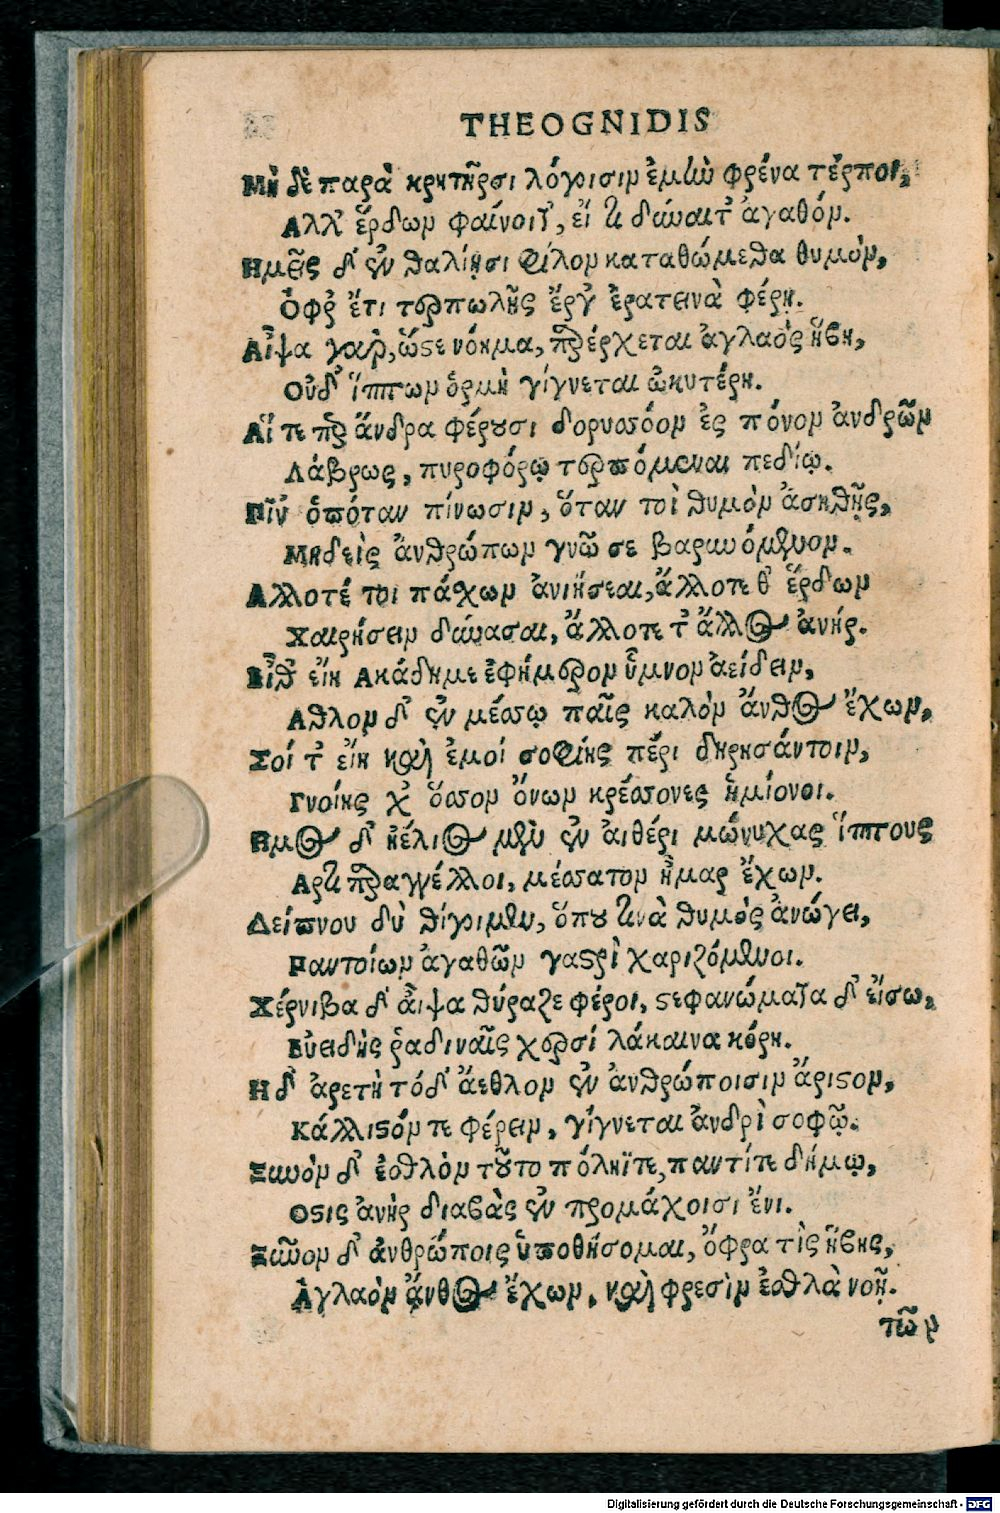 THEOGNIDIS
Μὴ δὲ παρὰ κρητῆρσι λόγοισιν ἐμὴν φρένα τέρποι,
Αλλ' ἔρδων φαίνοιτ', εἴ τι δύναιτ' ἀγαθόν.
Ημεῖς δ' ἐν θαλίῃσι φίλον καταθώμεθα θυμὸν,
Ὄφρ' ἔτι τερπωλῆς ἔργ' ἐρατεινὰ φέρῃ.
Αἶψα γαρ, ὥστε νόημα, παρέρχεται ἀγλαὸς ἥβη,
Οὐδ' ἵππων ὁρμὴ γίγνεται ὠκυτέρη.
Αἵ τε περ ἄνδρα φέρουσι δορυσσόον ἐς πόνον ἀνδρῶν
Λάβρως, πυροφόρῳ τερπόμεναι πεδίῳ.
Πῖν' ὁπόταν πίνωσιν, ὅταν τοὶ θυμὸν ἀσηθῇς,
Μηδεὶς ἄνθρώπων γνῷ σε βαρυνόμενον.
Αλλοτέ τοι πάσχων ἀνιήσεαι, ἄλλοτε θ' ἔρδων
Χαιρήσειν δύνασαι, ἄλλοτε τ' ἄλλος ἀνήρ.
Εἴθ' εἴη Ακάδημε ἐφήμερον ὕμνον ἀείδειν,
Αθλον δ' ἐν μέσσῳ παῖς καλὸν ἄνθος ἔχων,
Σοί τ' εἴη καὶ ἐμοί σοφίης πέρι δηρησάντοιν,
Γνοίης χ' ὅσσον ὄνων κρέσσονες ἡμίονοι.
Ημος δ' ἠέλιος μὲν ἐν αἰθέρι μώνυχας ἵππους
Αρτι παραγγέλλοι, μέσσατον ἦμαρ ἔχων.
Δείπνου δὴ θίγοιμεν, ὅπου τινὰ θυμὸς ἀνώγει,
Παντοίων ἀγαθῶν γαστρὶ χαριζόμενοι.
Χέρνιβα δ' αἶψα θύραζε φέροι, στεφανώματα δ' εἴσω,
Εὐειδὴς ῥαδιναῖς χερσί λάκαινα κόρη.
Η δ' ἀρετὴ τόδ' ἄεθλον ἐν ἀνθρώποισιν ἄριστον,
Κάλλιστόν τε φέρειν, γίγνεται ἀνδρὶ σοφῷ.
Ξυνὸν δ' ἐσθλὸν τοῦτο πόληΐ τε, παντί τε δήμῳ,
Οστις ἀνὴρ διαβὰς ἐν προμάχοισι ἔνι.
Ξυνὸν δ' ἀνθρώποις ὑποθήσομαι, ὄφρα τὶς ἥβης,
Ἀγλαὸν ἄνθος ἔχων, καὶ φρεσὶν ἐσθλὰ νοῇ.
τῶν
Digitalisierung gefördert durch die Deutsche Forschungsgemeinschaft - DFG